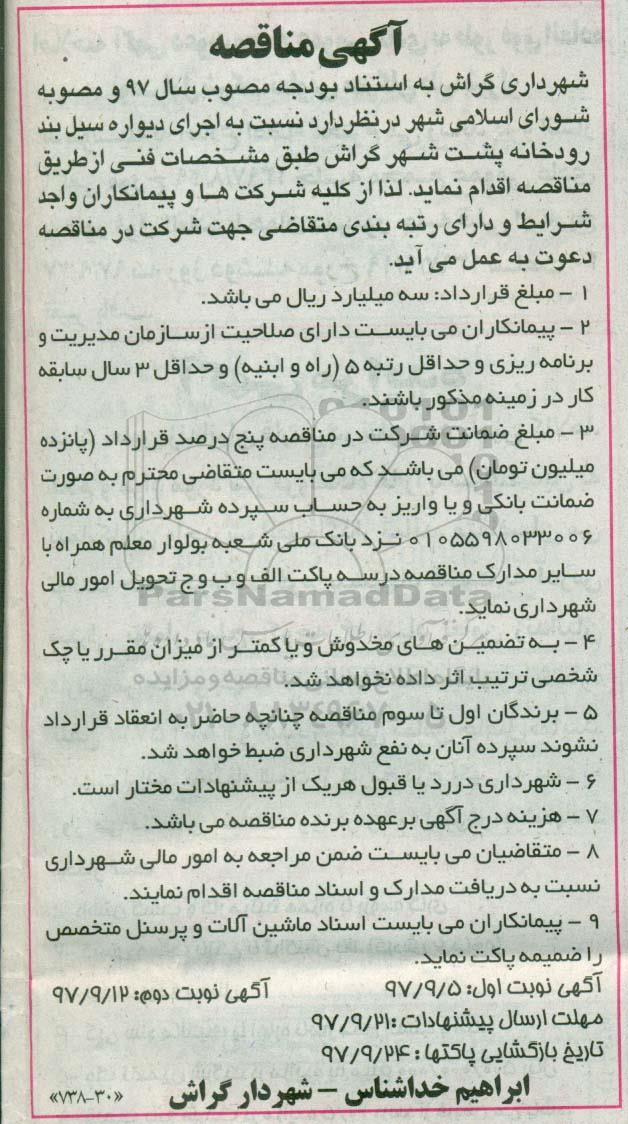 آگهی مناقصه
شهرداری گراش به استناد بودجه مصوب سال ۹۷ و مصوبه
شورای اسلامی شهر درنظردارد نسبت به اجرای دیواره سیل بند
رودخانه پشت شهر گراش طبق مشخصات فنی ازطریق
مناقصه اقدام نماید. لذا از کلیه شرکت ها و پیمانکاران واجد
شرایط و دارای رتبه بندی متقاضی جهت شرکت در مناقصه
دعوت به عمل می آید.
۱ – مبلغ قرارداد: سه میلیارد ریال می باشد.
۲ – پیمانکاران می بایست دارای صلاحیت ازسازمان مدیریت و
برنامه ریزی و حداقل رتبه ۵ (راه و ابنیه) و حداقل ۳ سال سابقه
کار در زمینه مذکور باشند.
۳ – مبلغ ضمانت شرکت در مناقصه پنج درصد قرارداد (پانزده
میلیون تومان) می باشد که می بایست متقاضی محترم به صورت
ضمانت بانکی و یا واریز به حساب سپرده شهرداری به شماره
۰۱۰۵۵۹۸۰۳۳۰۰۶ نزد بانک ملی شعبه بولوار معلم همراه با
سایر مدارک مناقصه درسه پاکت الف و ب و ج تحویل امور مالی
شهرداری نماید.
ParsNamadData
۴ – به تضمین های مخدوش و یا کمتر از میزان مقرر یا چک
شخصی ترتیب اثر داده نخواهد شد.
۵ – برندگان اول تا سوم مناقصه چنانچه حاضر به انعقاد قرارداد
نشوند سپرده آنان به نفع شهرداری ضبط خواهد شد.
۶ – شهرداری دررد یا قبول هریک از پیشنهادات مختار است.
۷ – هزینه درج آگهی برعهده برنده مناقصه می باشد.
۸ – متقاضیان می بایست ضمن مراجعه به امور مالی شهرداری
نسبت به دریافت مدارک و اسناد مناقصه اقدام نمایند.
۹ – پیمانکاران می بایست اسناد ماشین آلات و پرسنل متخصص
را ضمیمه پاکت نماید.
آگهی نوبت اول: ۹۷/۹/۵ آگهی نوبت دوم: ۹۷/۹/۱۲
مهلت ارسال پیشنهادات :۹۷/۹/۲۱
تاریخ بازگشایی پاکتها : ۹۷/۹/۲۴
ابراهیم خداشناس – شهردار گراش «۷۳۸-۳۰»